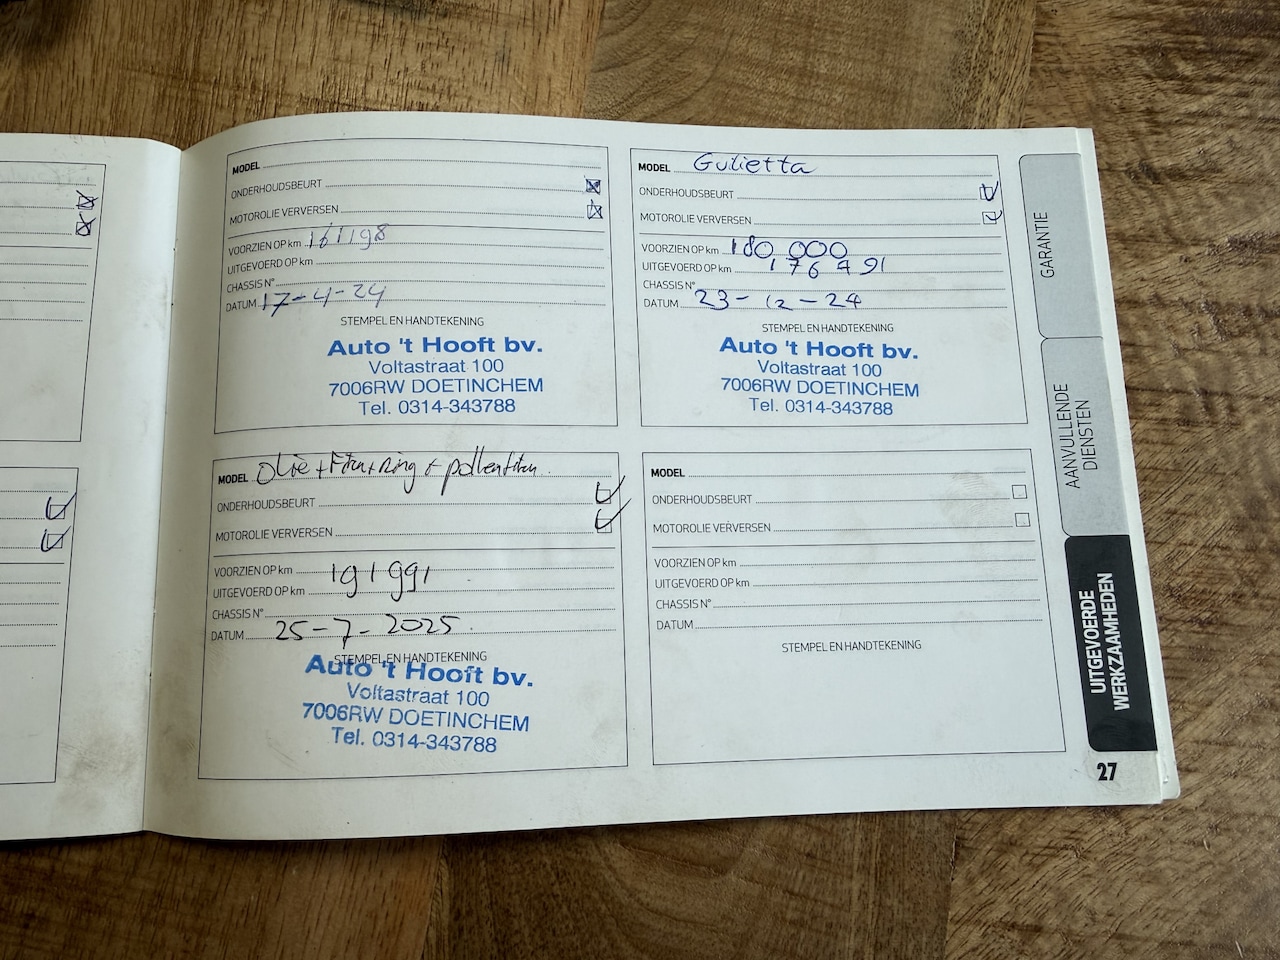 MODEL
ONDERHOUDSBEURT
MOTOROLIE VERVERSEN
VOORZIEN OP km 161198
UITGEVOERD OP km
CHASSIS N°
DATUM 17-4-24
STEMPEL EN HANDTEKENING
Auto 't Hooft bv.
Voltastraat 100
7006RW DOETINCHEM
Tel. 0314-343788
MODEL Gulietta
ONDERHOUDSBEURT
MOTOROLIE VERVERSEN
VOORZIEN OP km 180 000
UITGEVOERD OP km 176491
CHASSIS N°
DATUM 23-12-24
STEMPEL EN HANDTEKENING
Auto 't Hooft bv.
Voltastraat 100
7006RW DOETINCHEM
Tel. 0314-343788
MODEL Olie + + Ring +
ONDERHOUDSBEURT
MOTOROLIE VERVERSEN
VOORZIEN OP km 191991
UITGEVOERD OP km
CHASSIS N°
DATUM 25-7-2025
STEMPEL EN HANDTEKENING
Auto 't Hooft bv.
Voltastraat 100
7006RW DOETINCHEM
Tel. 0314-343788
MODEL
ONDERHOUDSBEURT
MOTOROLIE VERVERSEN
VOORZIEN OP km
UITGEVOERD OP km
CHASSIS N°
DATUM
STEMPEL EN HANDTEKENING
GARANTIE
AANVULLENDE
DIENSTEN
UITGEVOERDE
WERKZAAMHEDEN
27